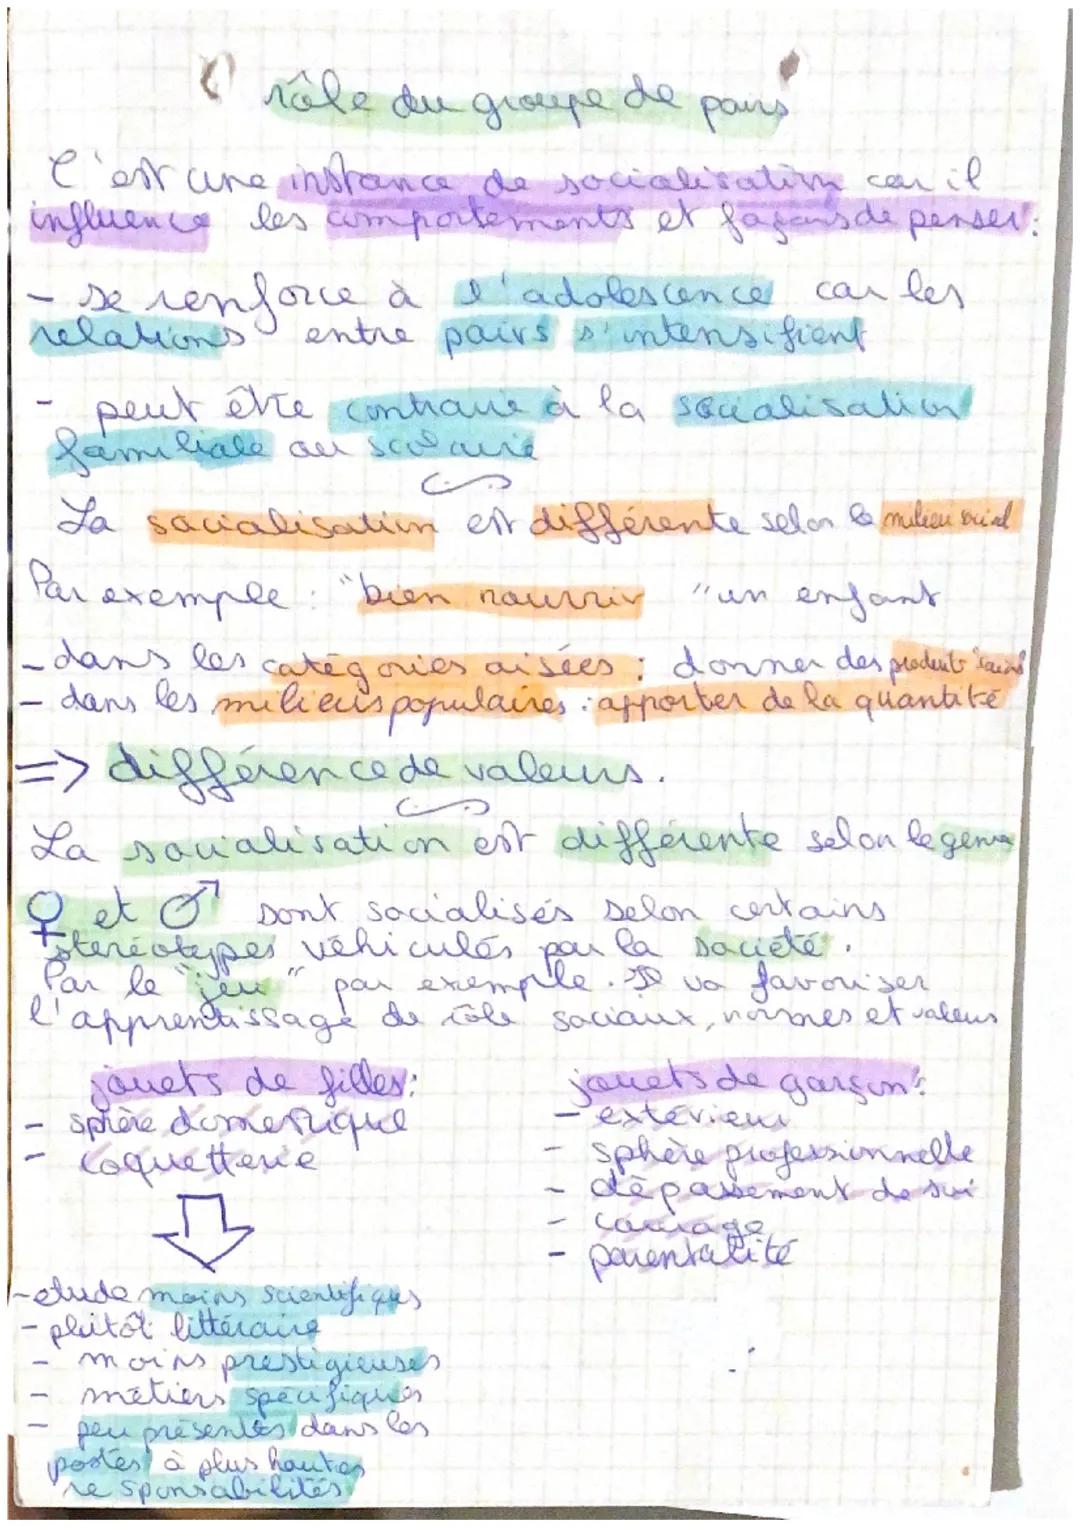 rôle du groupe de pairs
C'est une instance de socialisation car il
influence les comportements et façons de penser :
- se renforce à l'adolescence car les
relations entre pairs s'intensifient
- peut être contraire à la socialisation
familiale ou scolaire
La socialisation est différente selon le milieu social
Par exemple : "bien nourrir" un enfant
- dans les catégories aisées : donner des produits sains
- dans les milieux populaires : apporter de la quantité
=> différence de valeurs.
La socialisation est différente selon le genre
♀ et ♂ sont socialisés selon certains
stéréotypes véhiculés par la société.
Par le "jeu" par exemple. Il va favoriser
l'apprentissage de rôle sociaux, normes et valeurs
jouets de filles :
- sphère domestique
- coquetterie
jouets de garçon :
- extérieur
- sphère professionnelle
- dépassement de soi
- courage
- parentalité
- etude moins scientifiques
- plutôt littéraire
- moins prestigieuses
- métiers spécifiques
- peu présentes dans les
postes à plus hautes
responsabilités